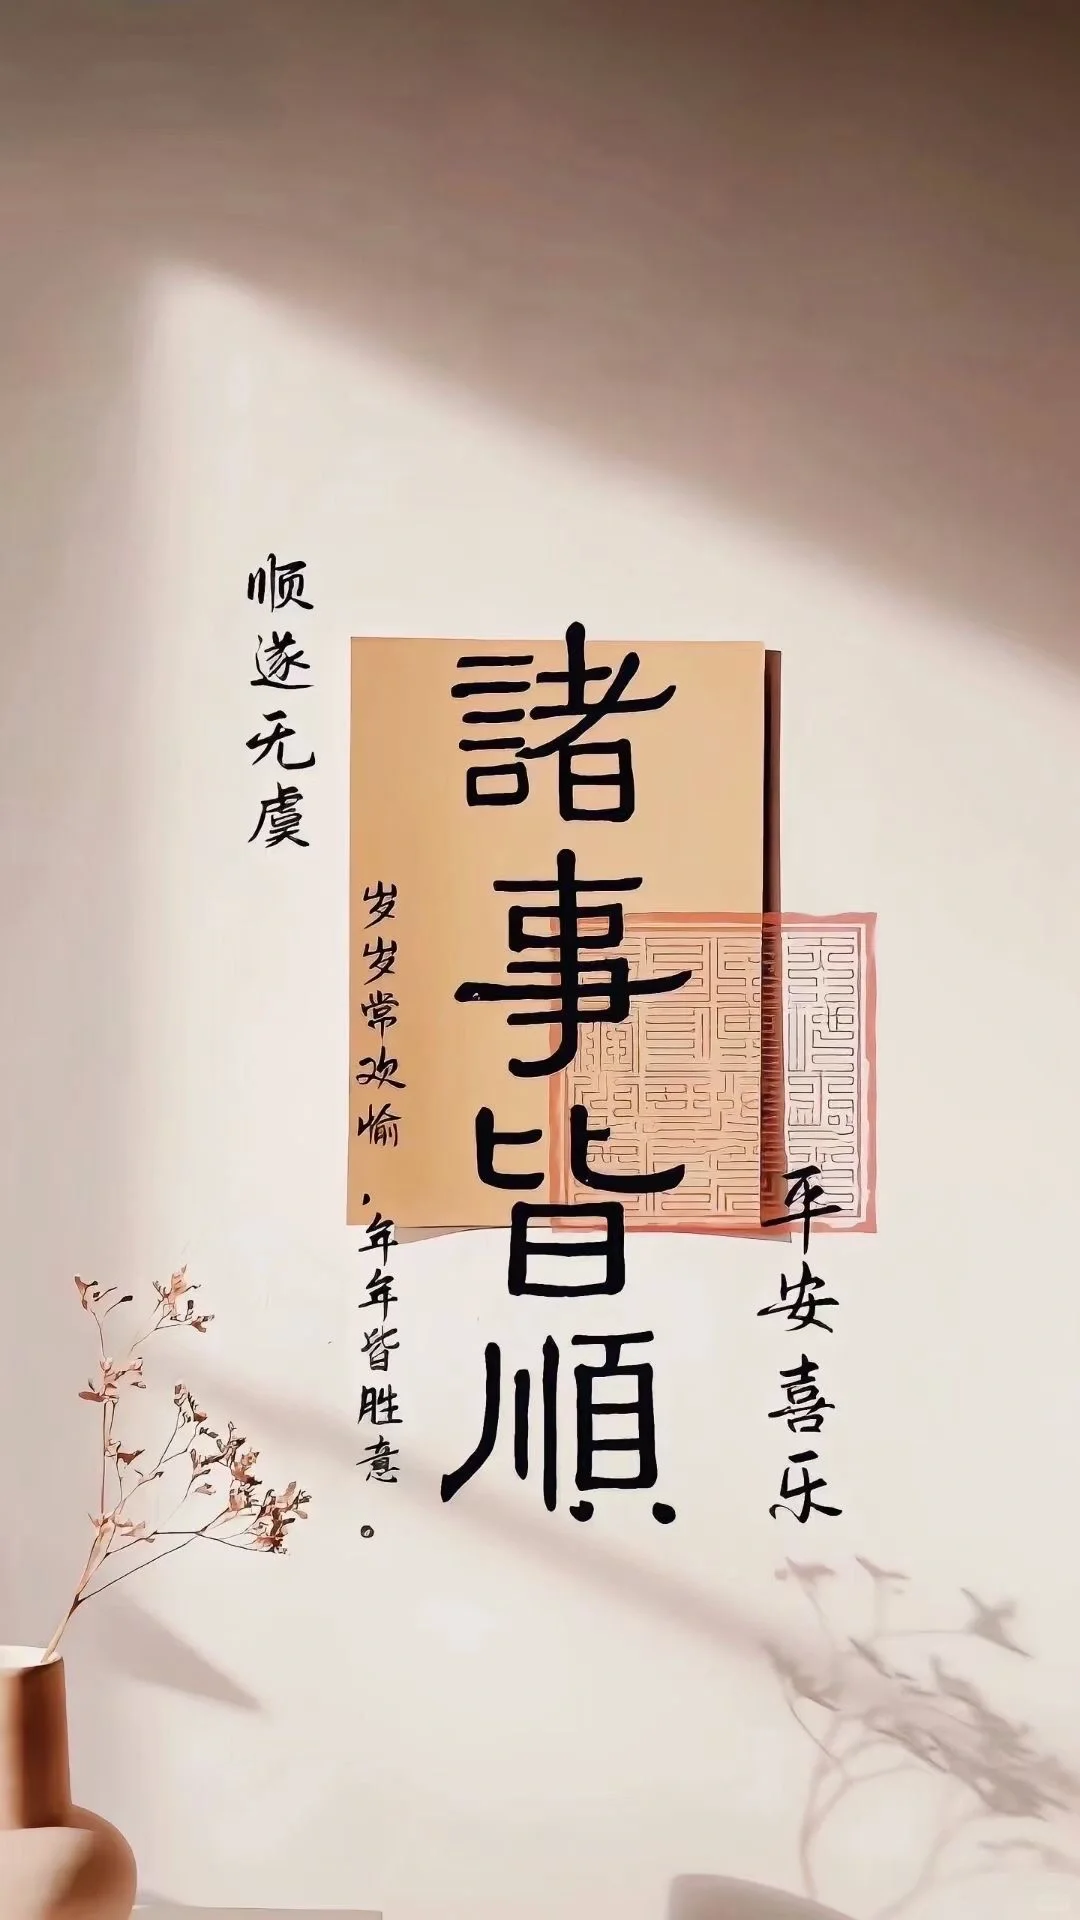 平安喜乐
諸事皆順
岁岁常欢愉，年年皆胜意。
顺遂无虞